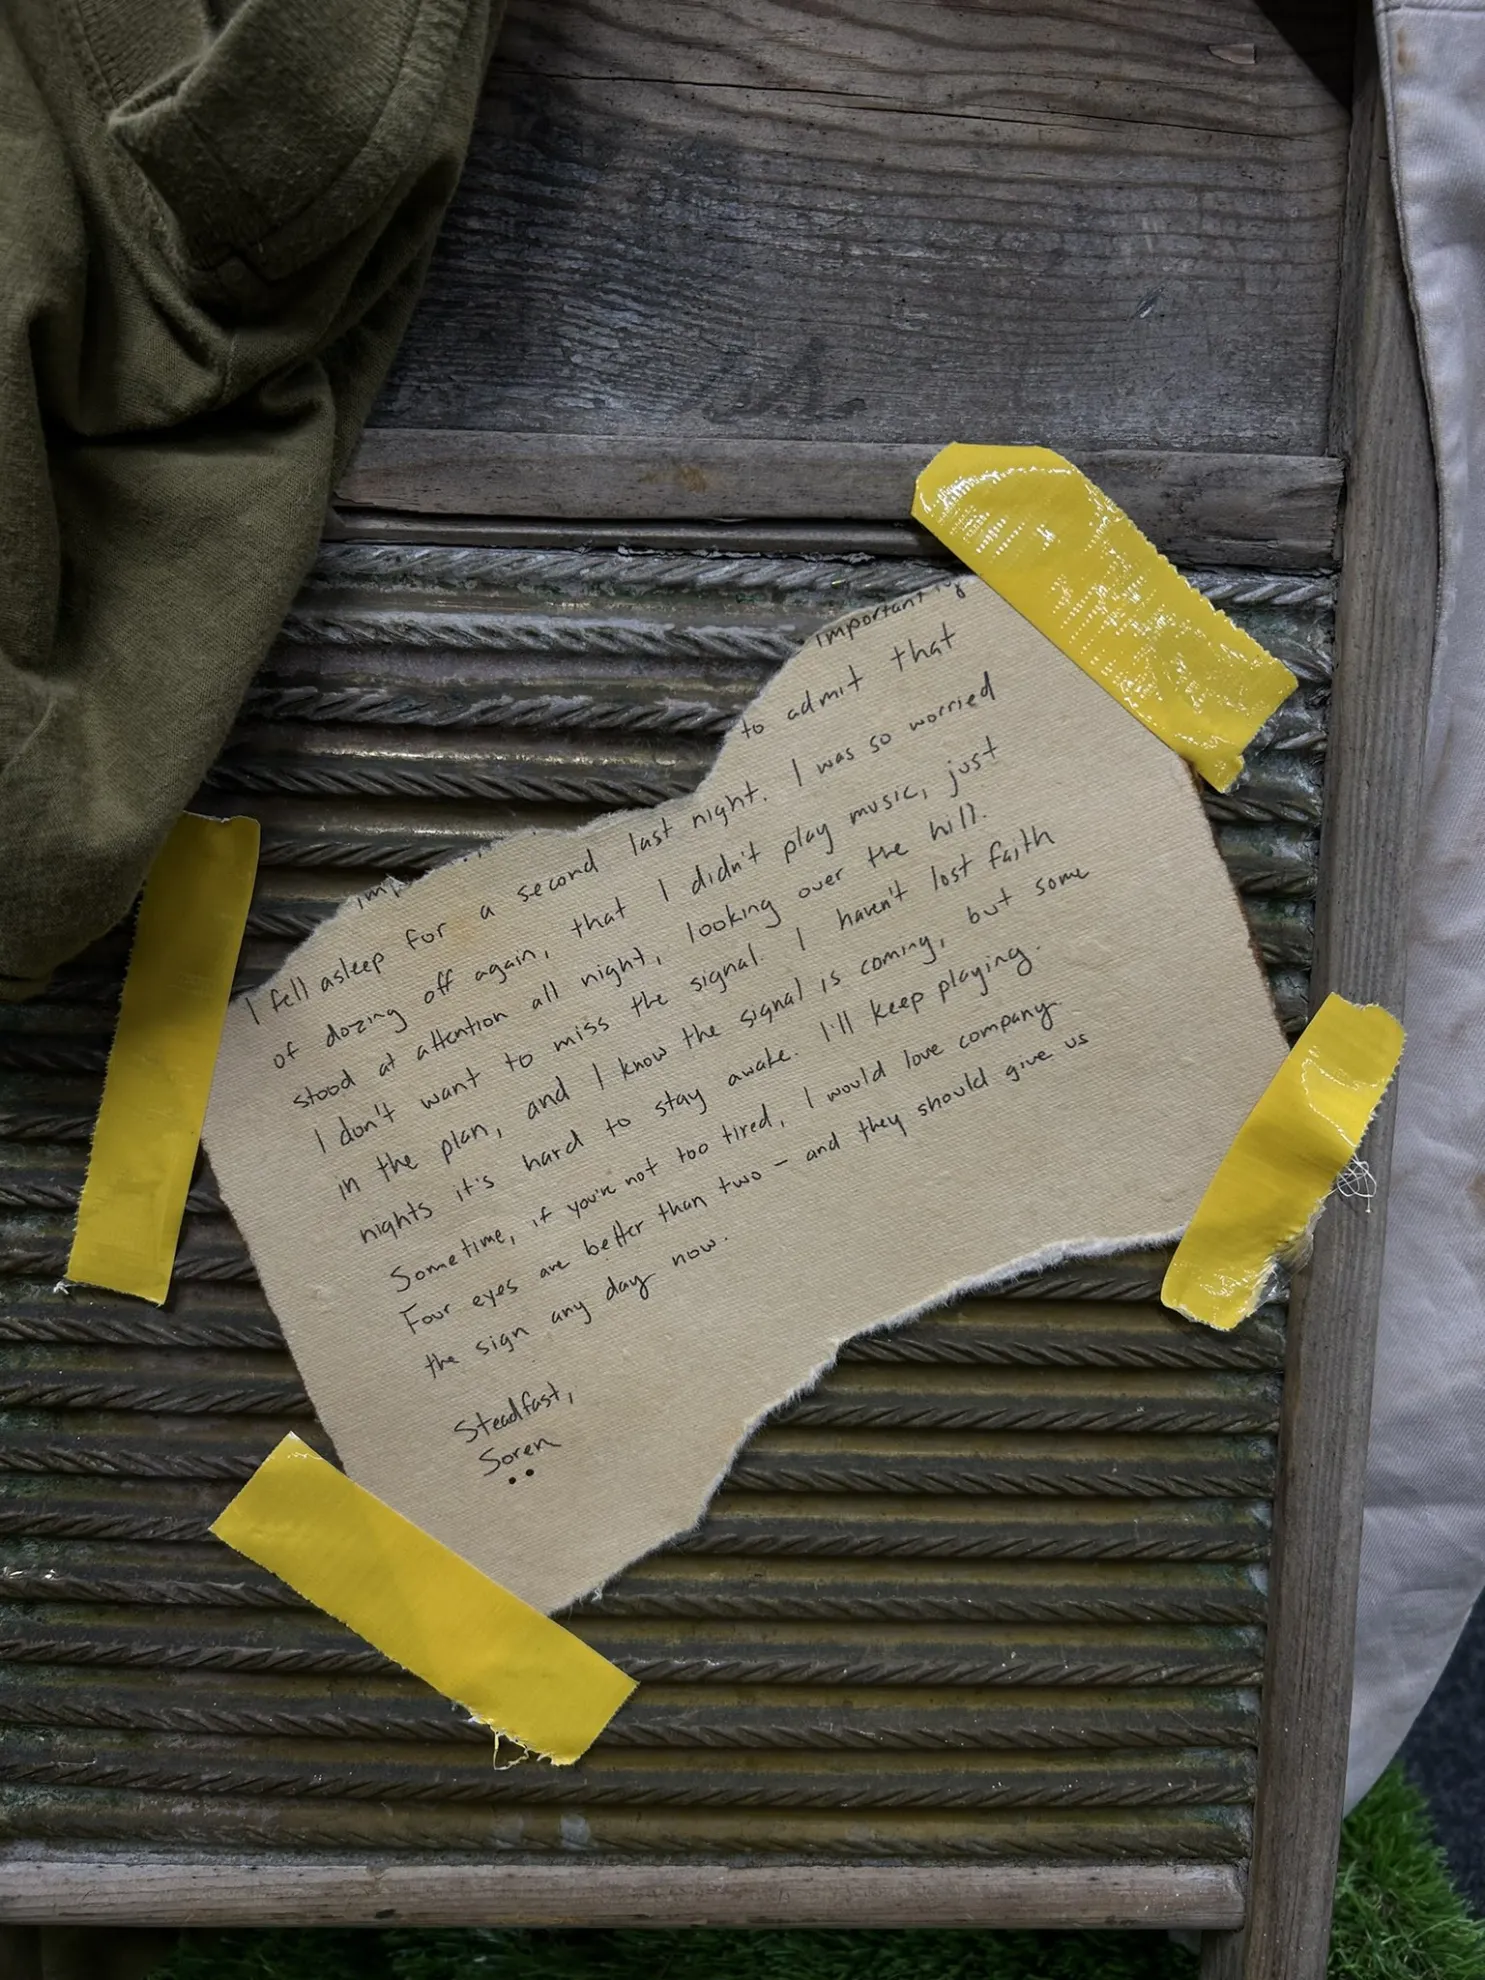 important
to admit that
I fell asleep for a second last night. I was so worried
of dozing off again, that I didn't play music, just
stood at attention all night, looking over the hill.
I don't want to miss the signal. I haven't lost faith
in the plan, and I know the signal is coming, but some
nights it's hard to stay awake. I'll keep playing.
Sometime, if you're not too tired, I would love company.
Four eyes are better than two - and they should give us
the sign any day now.
Steadfast,
Soren